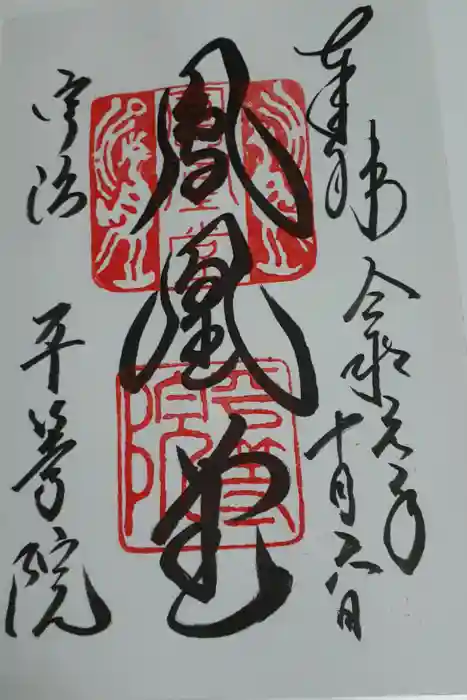 奉拝
令和元年
十月
鳳凰堂
宇治
平等院
平等院